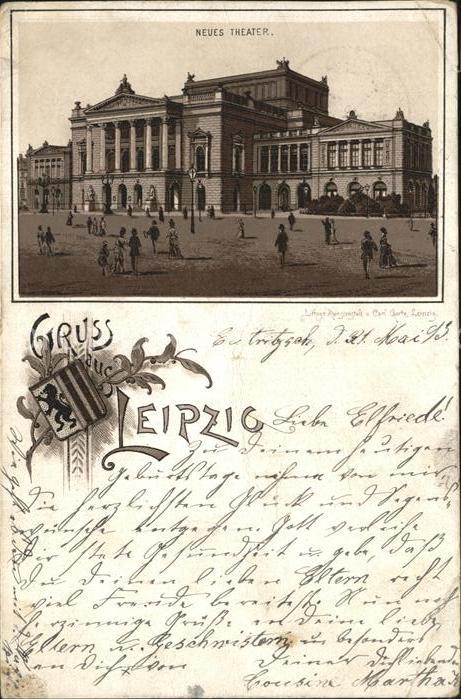 NEUES THEATER.
Lithogr. Kunstanstalt v. Carl Garte, Leipzig.
GRUSS
aus
LEIPZIG
Eutritzsch, d. 21. Mai 93.
Liebe Elfriede!
Zu Deinem heutigen
Geburtstage nehme von mir
die herzlichsten Glück und Segens-
wünsche entgegen. Gott verleihe
Dir stets Gesundheit u. gebe, daß
du Deinen lieben Eltern recht
viel Freude bereitest. Nun noch
herzinnige Grüße an Deine lieben
Eltern u. Geschwistern, u. besonders
an Dich, von Deiner Dich liebenden
Cousine Martha